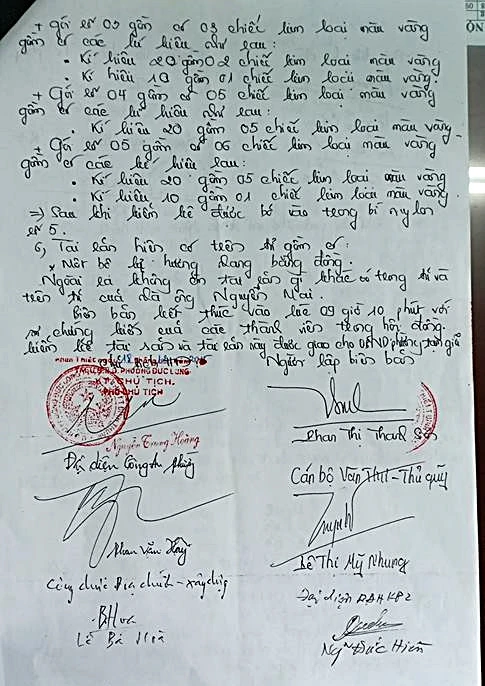 + Gói số 03 gồm có 03 chiếc kim loại màu vàng
gồm có các kí hiệu như sau:
• Kí hiệu 20 gồm 02 chiếc kim loại màu vàng
• Kí hiệu 10 gồm 01 chiếc kim loại màu vàng
+ Gói số 04 gồm có 05 chiếc kim loại màu vàng
gồm có các kí hiệu như sau:
• Kí hiệu 20 gồm 05 chiếc kim loại màu vàng.
+ Gói số 05 gồm có 06 chiếc kim loại màu vàng
gồm có các kí hiệu sau:
• Kí hiệu 20 gồm 05 chiếc kim loại màu vàng
• Kí hiệu 10 gồm 01 chiếc kim loại màu vàng.
=> Sau khi kiểm kê được bỏ vào trong bì nylon
số 5.
6, Tài sản hiện có trên tì gồm có:
* Một bộ lư hương dạng bằng đồng.
Ngoài ra không còn tài sản gì khác có trong tì và
trên tì của nhà ông Nguyễn Mai.
Biên bản kết thúc vào lúc 09 giờ 10 phút với
sự chứng kiến của các thành viên trong hội đồng
kiểm kê tài sản và tài sản này được giao cho UBND phường tạm giữ
Người lập biên bản
TM. UBND PHƯỜNG ĐỨC LONG
KT. CHỦ TỊCH
PHÓ CHỦ TỊCH
Nguyễn Trung Hoàng
Phan Thị Thanh
Đại diện Công an phường
Cán bộ Văn Thư - Thủ quỹ
Phan Văn
Lê Thị Mỹ Nhung
Công chức Địa chính - xây dựng
Đại diện BĐH KP2
BHoà
Lê Bá Hoà
Ngô Đức Hiền